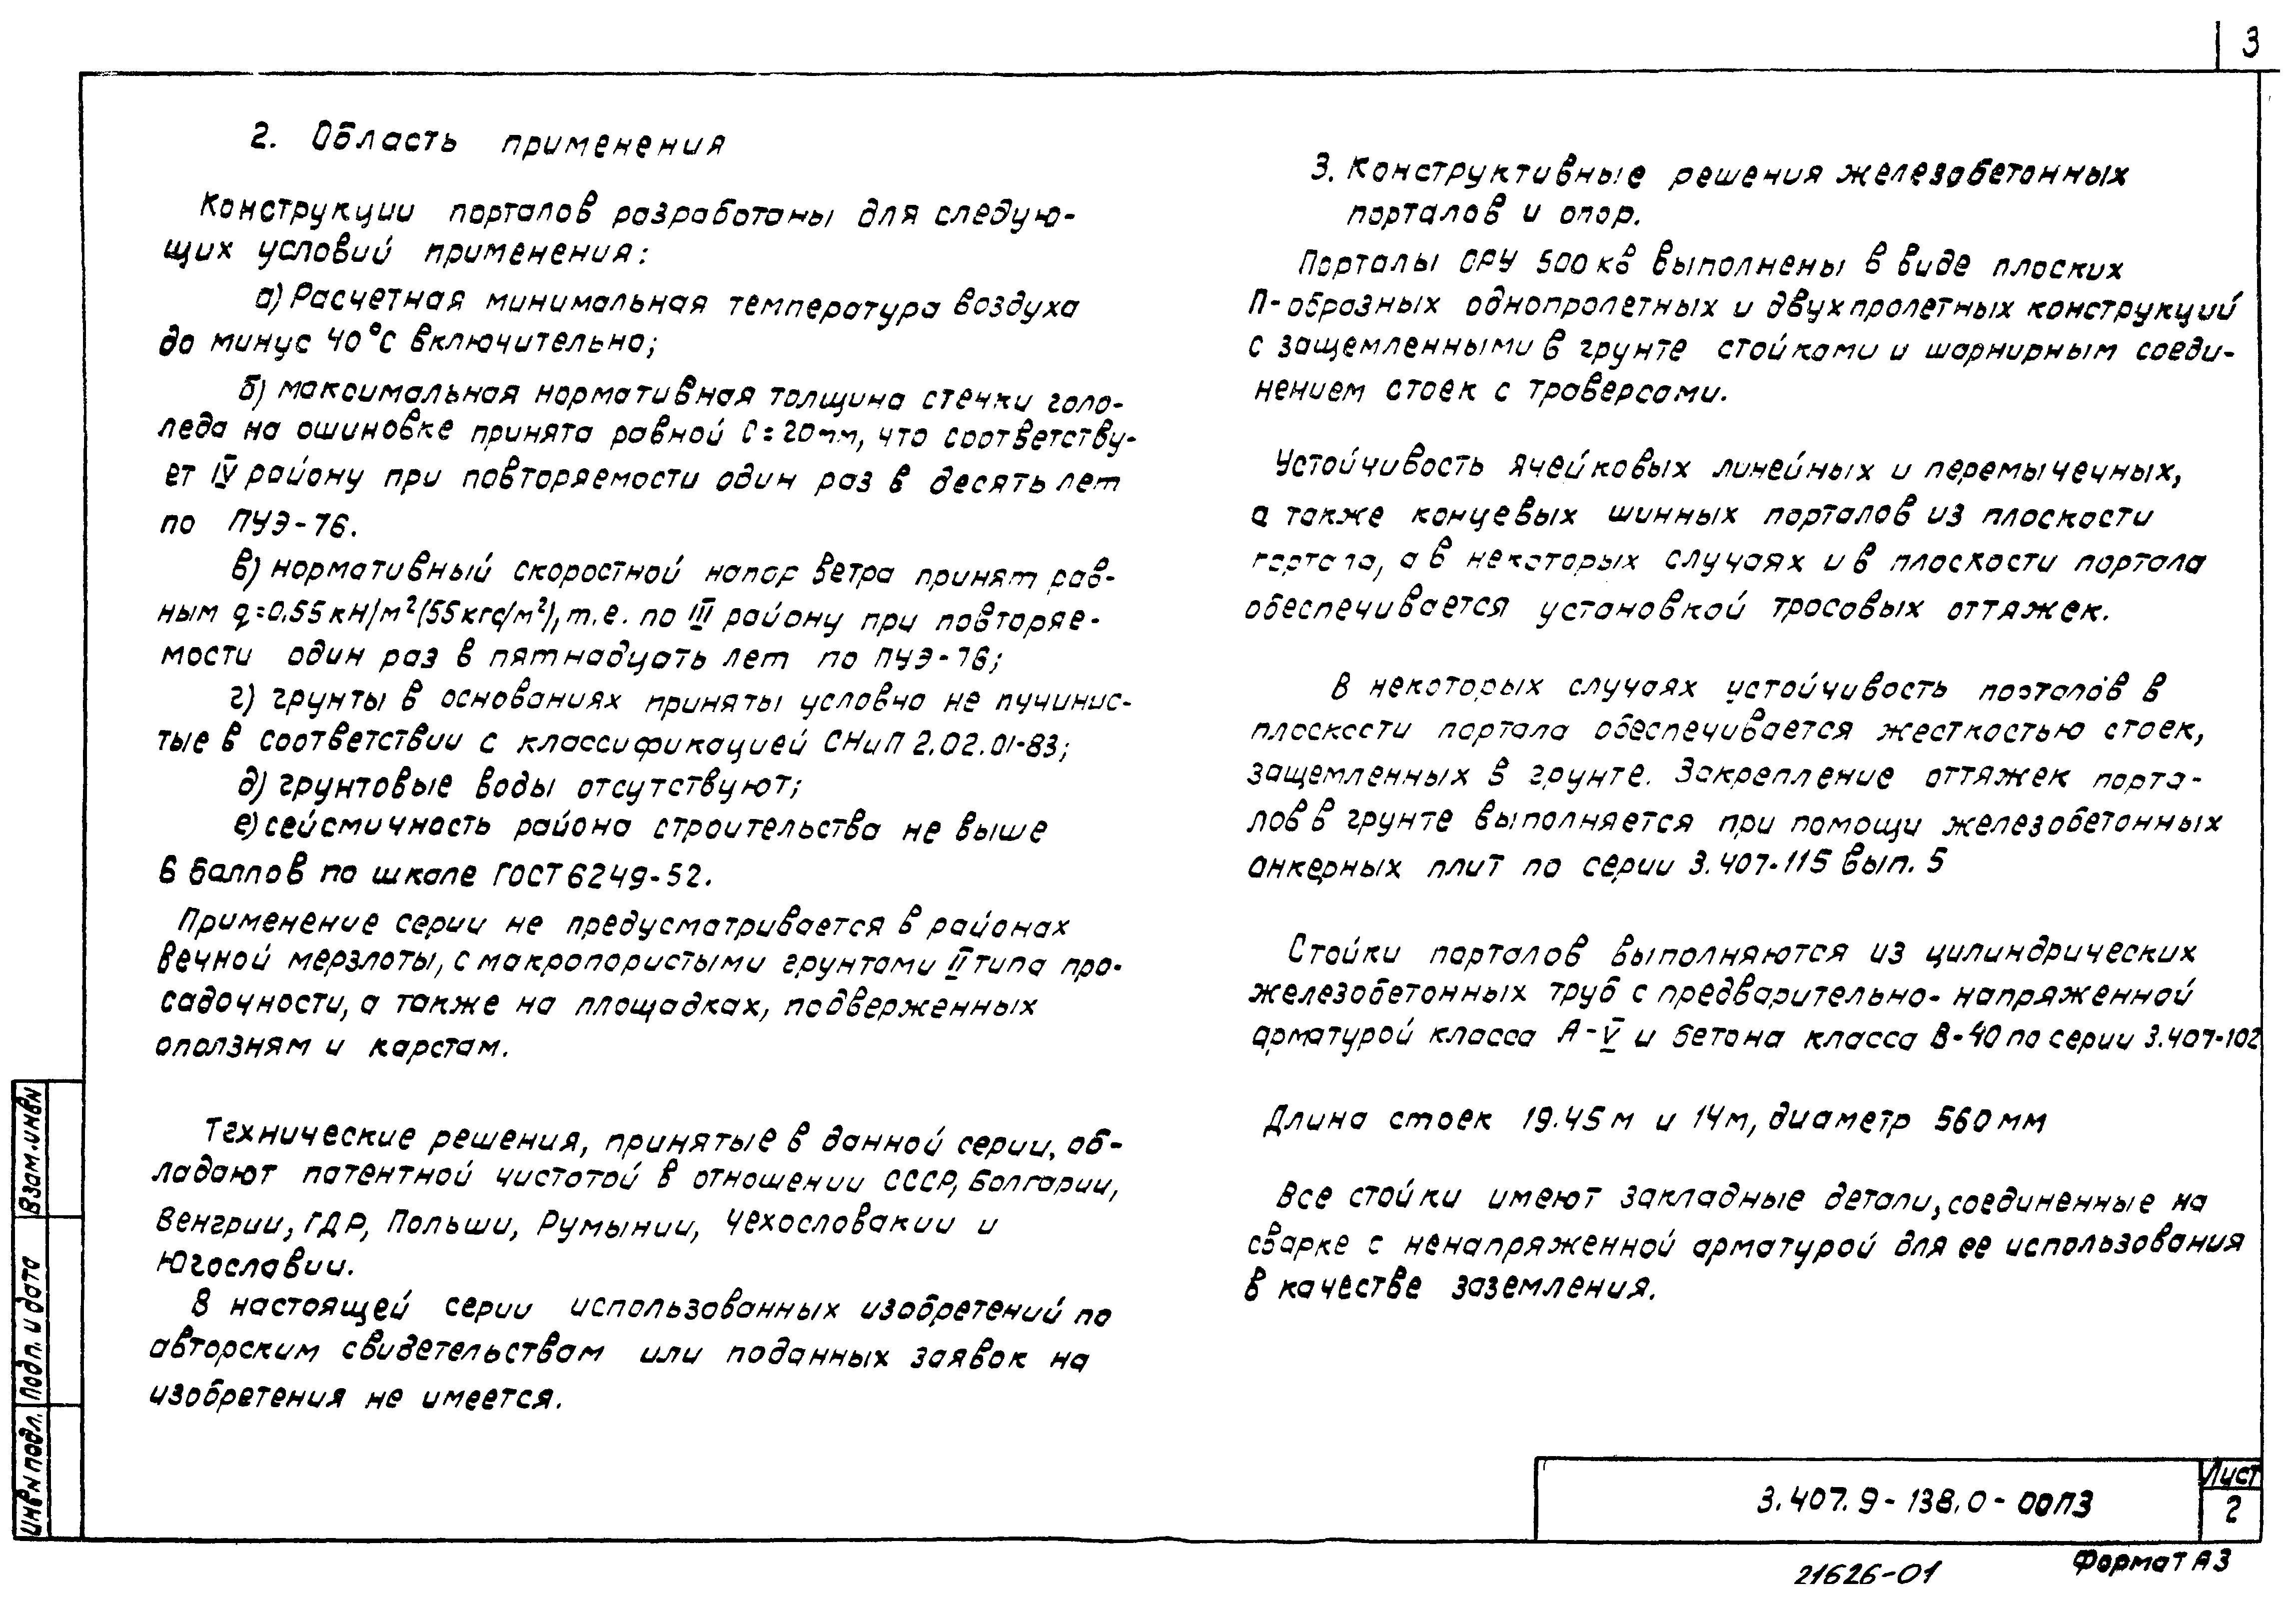 3
2. Область применения
Конструкции порталов разработаны для следую-
щих условий применения:
а) Расчетная минимальная температура воздуха
до минус 40°С включительно;
б) максимальная нормативная толщина стенки голо-
леда на ошиновке принята равной С=20мм, что соответству-
ет IV району при повторяемости один раз в десять лет
по ПУЭ-76.
в) нормативный скоростной напор ветра принят рав-
ным q=0.55 кН/м²(55кгс/м²), т.е. по III району при повторяе-
мости один раз в пятнадцать лет по ПУЭ-76;
г) грунты в основаниях приняты условно не пучинис-
тые в соответствии с классификацией СНиП 2.02.01-83;
д) грунтовые воды отсутствуют;
е) сейсмичность района строительства не выше
6 баллов по шкале ГОСТ 6249-52.
Применение серии не предусматривается в районах
вечной мерзлоты, с макропористыми грунтами II типа про-
садочности, а также на площадках, подверженных
оползням и карстам.
Технические решения, принятые в данной серии, об-
ладают патентной чистотой в отношении СССР, Болгарии,
Венгрии, ГДР, Польши, Румынии, Чехословакии и
Югославии.
В настоящей серии использованных изобретений по
авторским свидетельствам или поданных заявок на
изобретения не имеется.
3. Конструктивные решения железобетонных
порталов и опор.
Порталы ОРУ 500 кв выполнены в виде плоских
П-образных однопролетных и двухпролетных конструкций
с защемленными в грунте стойками и шарнирным соеди-
нением стоек с траверсами.
Устойчивость ячейковых линейных и перемычечных,
а также концевых шинных порталов из плоскости
портала, а в некоторых случаях и в плоскости портала
обеспечивается установкой тросовых оттяжек.
В некоторых случаях устойчивость порталов в
плоскости портала обеспечивается жесткостью стоек,
защемленных в грунте. Закрепление оттяжек порта-
лов в грунте выполняется при помощи железобетонных
анкерных плит по серии 3.407-115 вып. 5
Стойки порталов выполняются из цилиндрических
железобетонных труб с предварительно-напряженной
арматурой класса А-V и бетона класса В-40 по серии 3.407-102
Длина стоек 19.45 м и 14м, диаметр 560 мм
Все стойки имеют закладные детали, соединенные на
сварке с ненапряженной арматурой для ее использования
в качестве заземления.
Взам.инвN
Подп. и дата
инвN подл.
3.407.9-138.0-00ПЗ
Лист
2
21626-01
Формат А3